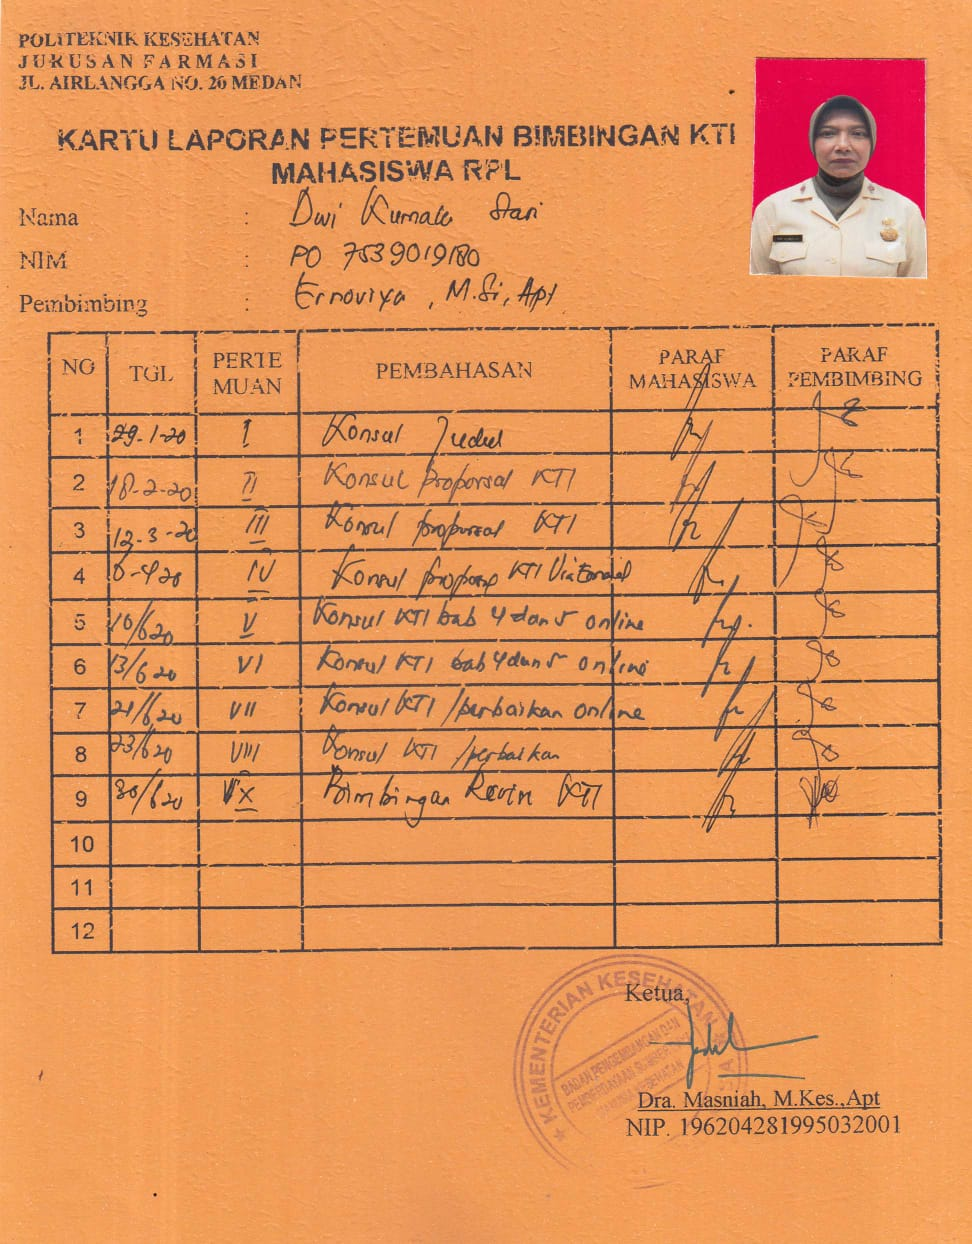 POLITEKNIK KESEHATAN
JURUSAN FARMASI
JL. AIRLANGGA NO. 20 MEDAN
KARTU LAPORAN PERTEMUAN BIMBINGAN KTI
MAHASISWA RPL
Nama : Dwi Kumala Sari
NIM : PO 7539019180
Pembimbing : Ernoviya, M.Si, Apt
NO TGL PERTE MUAN PEMBAHASAN PARAF MAHASISWA PARAF PEMBIMBING
1 29-1-20 I Konsul Judul
2 18-2-20 II Konsul proporsal KTI
3 12-3-20 III Konsul proporsal KTI
4 6-4-20 IV Konsul KTI Via
5 10/6 20 V Konsul KTI bab 4 dan 5 online
6 13/6 20 VI Konsul KTI bab 4 dan 5 online
7 21/6 20 VII Konsul KTI /perbaikan online
8 23/6 20 VIII Konsul KTI /perbaikan
9 30/6 20 IX Bimbingan KTI
10
11
12
KEMENTERIAN KESEHATAN
BADAN PENGEMBANGAN DAN
PEMBERDAYAAN SUMBER
MANUSIA KESEHATAN
Ketua,
Dra. Masniah, M.Kes.,Apt
NIP. 196204281995032001